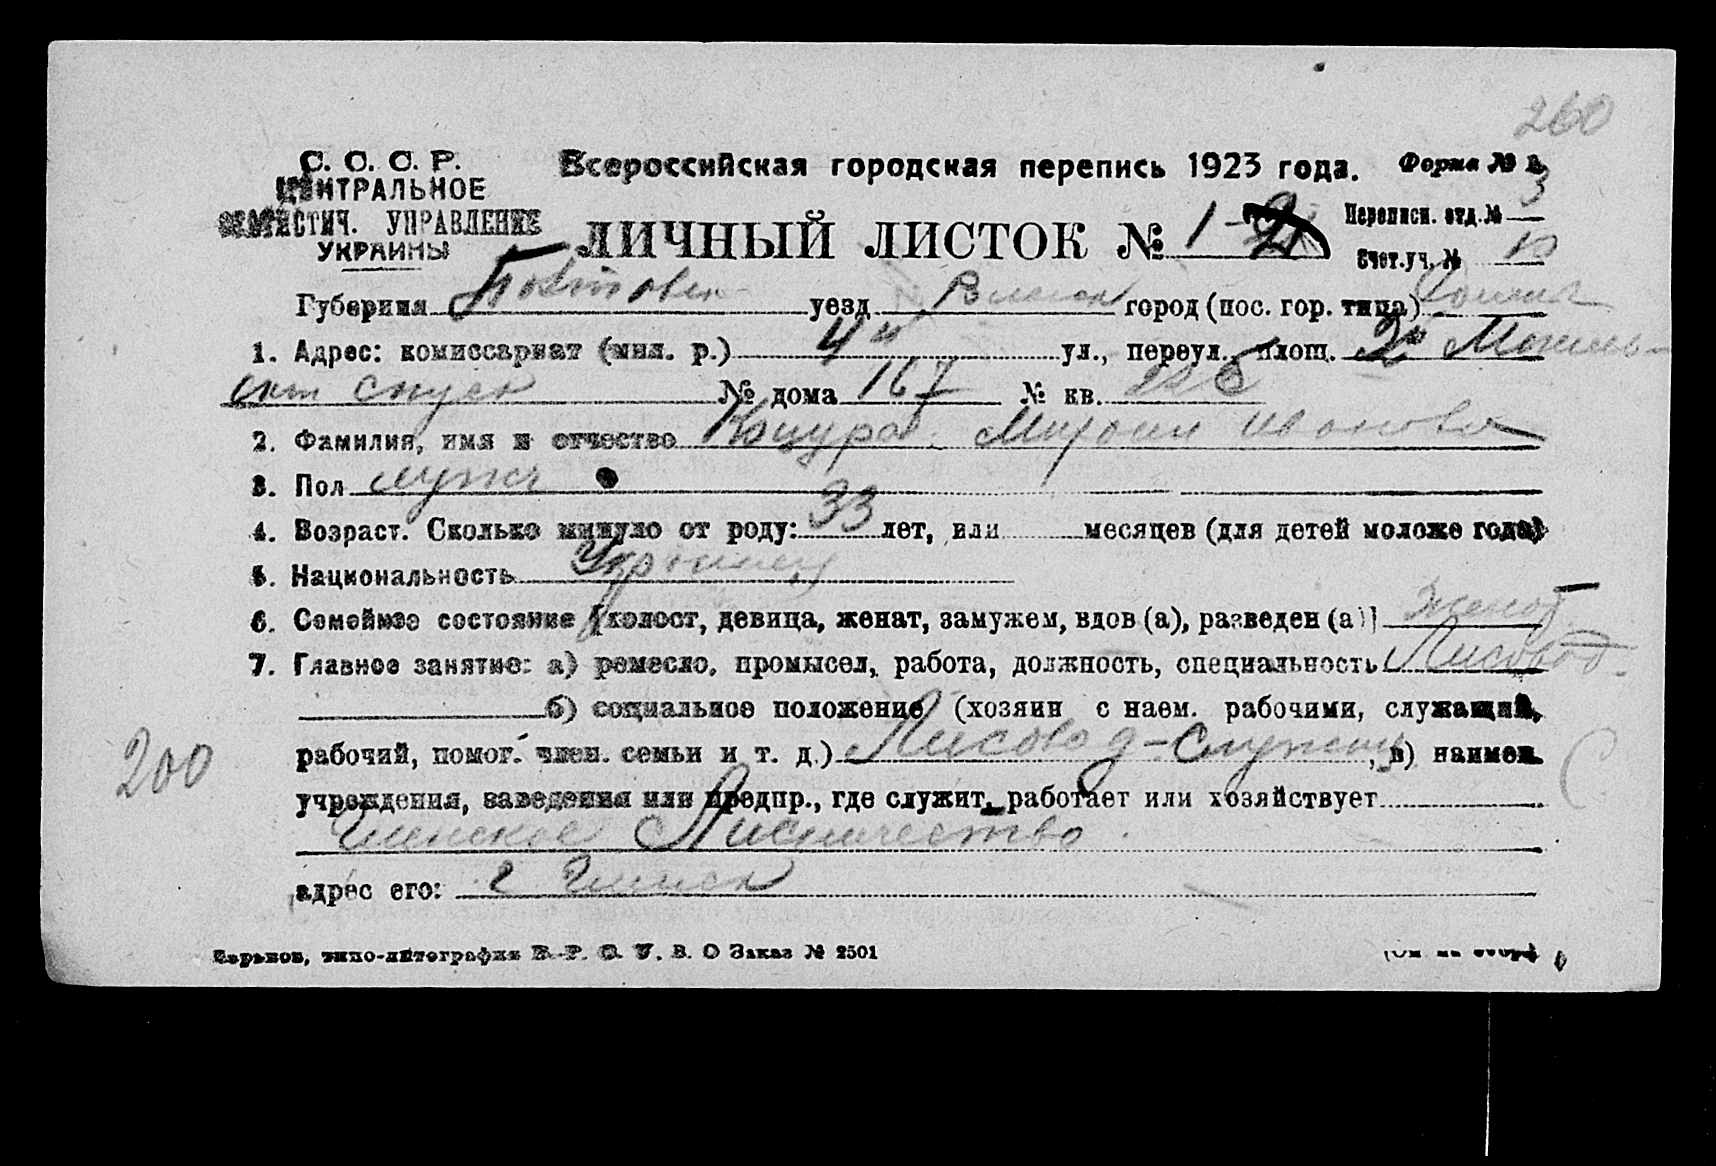 260
С. С. С. Р.
ЦЕНТРАЛЬНОЕ
СТАТИСТИЧ. УПРАВЛЕНИЕ
УКРАИНЫ
Всероссийская городская перепись 1923 года. Форма № 2.
ЛИЧНЫЙ ЛИСТОК № 1-
Переписн. отд. № 3
Счет. уч. №
Губерния уезд город (пос. гор. типа)
1. Адрес: комиссариат (мил. р.) 4й ул., переул., площ. 2й
спуск № дома 167 № кв.
2. Фамилия, имя и отчество
3. Пол мужч
4. Возраст. Сколько минуло от роду: 33 лет, или месяцев (для детей моложе года)
5. Национальность Украинец
6. Семейное состояние [холост, девица, женат, замужем, вдов (а), разведен (а)] женат
7. Главное занятие: а) ремесло, промысел, работа, должность, специальность Лисовод
б) социальное положение (хозяин с наем. рабочими, служащий,
рабочий, помог. член. семьи и т. д.) Лисовод - служащ, в) наимен.
учреждения, заведения или предпр., где служит, работает или хозяйствует
Лисничество
адрес его: г
200
Харьков, типо-литография В. Р. С. У. В. О Заказ № 2501
(См. на обор.)